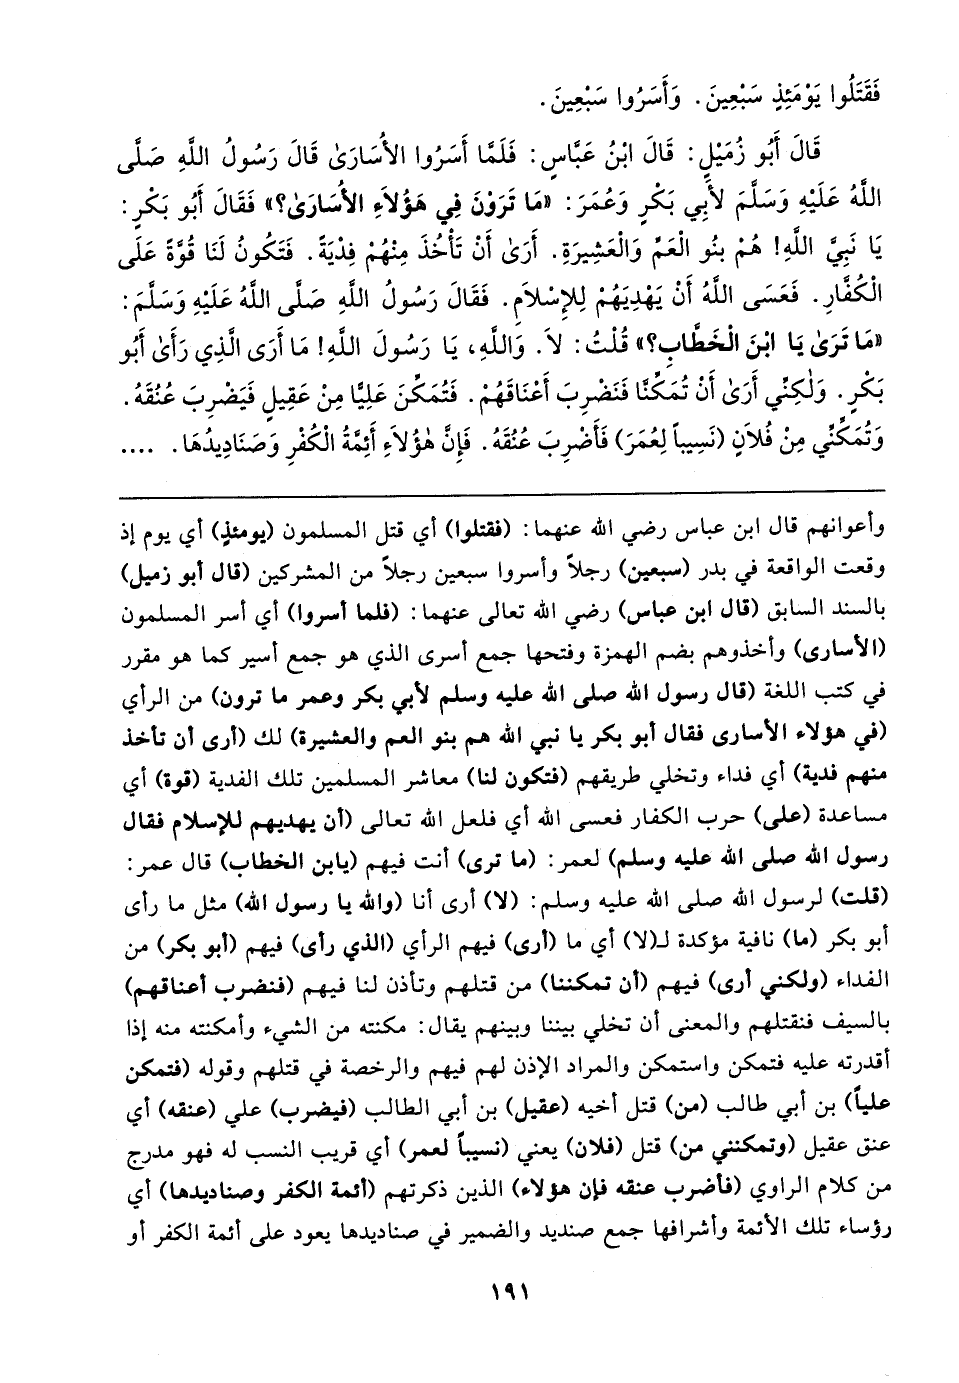 فَقَتَلُوا يَوْمَئِذٍ سَبْعِينَ. وَأَسَرُوا سَبْعِينَ.
قَالَ أَبُو زُمَيْلٍ: قَالَ ابْنُ عَبَّاسٍ: فَلَمَّا أَسَرُوا الأُسَارَىٰ قَالَ رَسُولُ اللَّهِ صَلَّى
اللَّهُ عَلَيْهِ وَسَلَّمَ لأَبِي بَكْرٍ وَعُمَرَ: «مَا تَرَوْنَ فِي هَؤُلاَءِ الأُسَارَىٰ؟» فَقَالَ أَبُو بَكْرٍ:
يَا نَبِيَّ اللَّهِ! هُمْ بَنُو الْعَمِّ وَالْعَشِيرَةِ. أَرَىٰ أَنْ تَأْخُذَ مِنْهُمْ فِدْيَةً. فَتَكُونُ لَنَا قُوَّةً عَلَى
الْكُفَّارِ. فَعَسَى اللَّهُ أَنْ يَهْدِيَهُمْ لِلإِسْلاَمِ. فَقَالَ رَسُولُ اللَّهِ صَلَّى اللَّهُ عَلَيْهِ وَسَلَّمَ:
«مَا تَرَىٰ يَا ابْنَ الْخَطَّابِ؟» قُلْتُ: لاَ. وَاللَّهِ، يَا رَسُولَ اللَّهِ! مَا أَرَى الَّذِي رَأَىٰ أَبُو
بَكْرٍ. وَلٰكِنِّي أَرَىٰ أَنْ تُمَكِّنَّا فَنَضْرِبَ أَعْنَاقَهُمْ. فَتُمَكِّنَ عَلِيًّا مِنْ عَقِيلٍ فَيَضْرِبَ عُنُقَهُ.
وَتُمَكِّنِّي مِنْ فُلاَنٍ (نَسِيباً لِعُمَرَ) فَأَضْرِبَ عُنُقَهُ. فَإِنَّ هٰؤُلاَءِ أَئِمَّةُ الْكُفْرِ وَصَنَادِيدُهَا. ....
وأعوانهم قال ابن عباس رضي الله عنهما: (فقتلوا) أي قتل المسلمون (يومئذٍ) أي يوم إذ
وقعت الواقعة في بدر (سبعين) رجلاً وأسروا سبعين رجلاً من المشركين (قال أبو زميل)
بالسند السابق (قال ابن عباس) رضي الله تعالى عنهما: (فلما أسروا) أي أسر المسلمون
(الأسارى) وأخذوهم بضم الهمزة وفتحها جمع أسرى الذي هو جمع أسير كما هو مقرر
في كتب اللغة (قال رسول الله صلى الله عليه وسلم لأبي بكر وعمر ما ترون) من الرأي
(في هؤلاء الأسارى فقال أبو بكر يا نبي الله هم بنو العم والعشيرة) لك (أرى أن تأخذ
منهم فدية) أي فداء وتخلي طريقهم (فتكون لنا) معاشر المسلمين تلك الفدية (قوة) أي
مساعدة (على) حرب الكفار فعسى الله أي فلعل الله تعالى (أن يهديهم للإسلام فقال
رسول الله صلى الله عليه وسلم) لعمر: (ما ترى) أنت فيهم (يابن الخطاب) قال عمر:
(قلت) لرسول الله صلى الله عليه وسلم: (لا) أرى أنا (والله يا رسول الله) مثل ما رأى
أبو بكر (ما) نافية مؤكدة لـ(لا) أي ما (أرى) فيهم الرأي (الذي رأى) فيهم (أبو بكر) من
الفداء (ولكني أرى) فيهم (أن تمكننا) من قتلهم وتأذن لنا فيهم (فنضرب أعناقهم)
بالسيف فنقتلهم والمعنى أن تخلي بيننا وبينهم يقال: مكنته من الشيء وأمكنته منه إذا
أقدرته عليه فتمكن واستمكن والمراد الإذن لهم فيهم والرخصة في قتلهم وقوله (فتمكن
علياً) بن أبي طالب (من) قتل أخيه (عقيل) بن أبي الطالب (فيضرب) علي (عنقه) أي
عنق عقيل (وتمكنني من) قتل (فلان) يعني (نسيباً لعمر) أي قريب النسب له فهو مدرج
من كلام الراوي (فأضرب عنقه فإن هؤلاء) الذين ذكرتهم (أئمة الكفر وصناديدها) أي
رؤساء تلك الأئمة وأشرافها جمع صنديد والضمير في صناديدها يعود على أئمة الكفر أو
١٩١